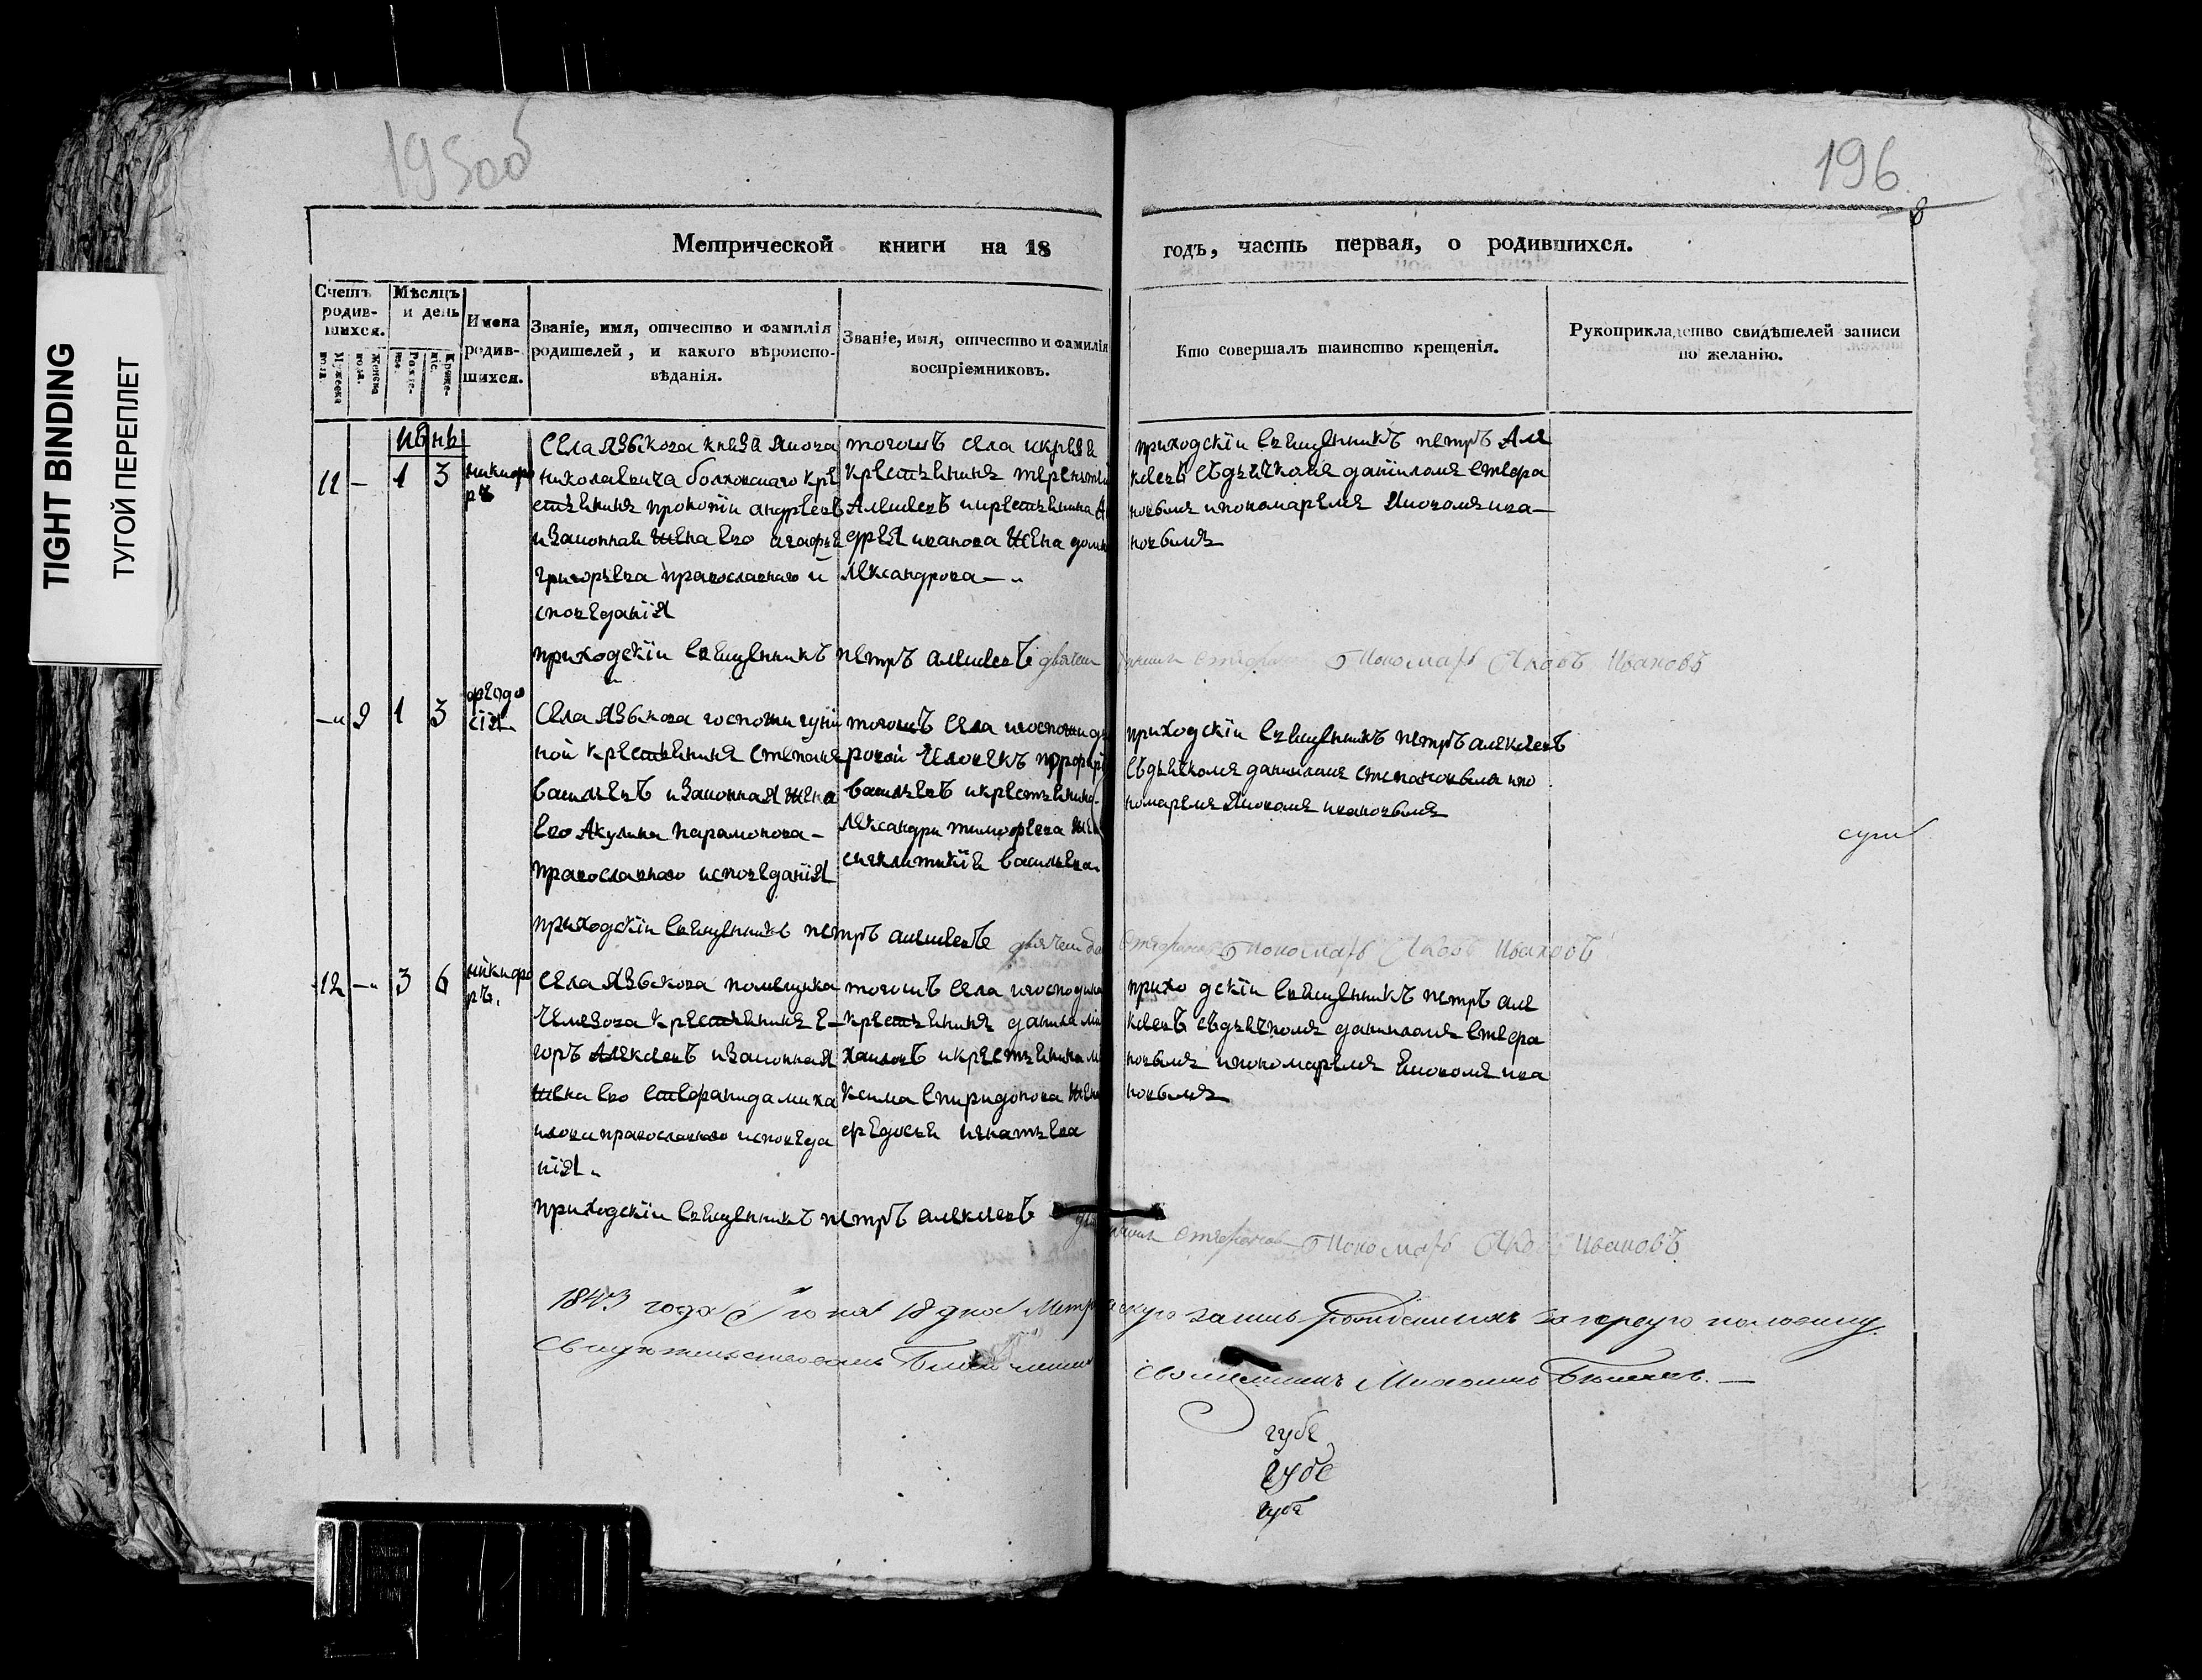 TIGHT BINDING
ТУГОЙ ПЕРЕПЛЕТ
195об
196
8
Метрической книги на 18
годъ, часть первая, о родившихся.
Счетъ родив-шихся.
Мужеска пола.
Женска пола.
Мѣсяцъ и день
Рожде-ніе.
Креще-ніе.
Имена родив-шихся.
Званіе, имя, отчество и фамилія родителей, и какого вѣроиспо-вѣданія.
Званіе, имя, отчество и фамилія воспріемниковъ.
Кто совершалъ таинство крещенія.
Рукоприкладство свидѣтелей записи по желанію.
11 — 1 3
никифо
ръ
села языкова князя якова
николаевича болховскаго кре
стьянинъ прокопїи андреевъ
изаконная жена его агафья
григорьева православнаго и
споведанїя
тогожъ села
крестьянинъ терентїи
Алексеевъ икрестьянина
дрея иванова жена
лександрова —
приходскїи священникъ петръ Але
ксеевъ сдьячкомъ данїиломъ стефа
новымъ ипономаремъ Яковомъ ива—
новымъ
приходскїи священникъ петръ алексеевъ
Пономарь Яковъ Ивановъ
— 9 1 3
феодо
сія
села языкова госпожи
ной крестьянинъ степанъ
васильевъ изаконная жена
его Акулина парамонова —
православнаго исповеданїя
тогожъ села игоспожи
ровой человекъ
васильевъ икрестьянина
лександры тимофеева
васильева
приходскїи священникъ петръ алексеевъ
сдьячкомъ даниломъ степановымъ ипо
номаремъ Яковомъ ивановымъ
приходскїи священникъ петръ алексеевъ
Пономарь Яковъ Ивановъ
12 — 3 6
никифо
ръ.
села языкова помещика
чемезова крестьянинъ е—
горъ Алексеевъ изаконная
жена его стефанида миха
илова православнаго исповеда
нїя.
тогожъ села игосподина
крестьянинъ данила ми
хаиловъ икрестьянина ма
ксима спиридонова жена
федосья игнатьева
приходскїи священникъ петръ але
ксеевъ сдьячкомъ даниломъ стефа
новымъ ипономаремъ Яковомъ ива
новымъ
приходскїи священникъ петръ алексеевъ
Пономарь Яковъ Ивановъ
1843 года Іюня 18 дня
половину
свидетельствовалъ
священникъ
губе
губе
губе